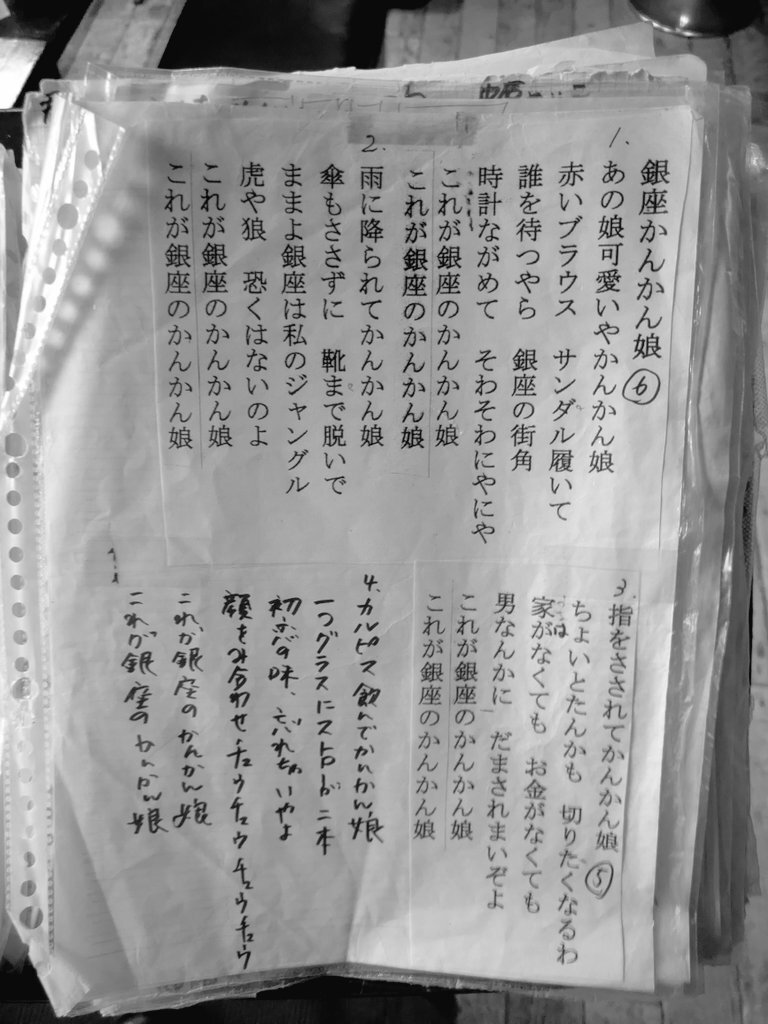 銀座かんかん娘 ⑥
1.
あの娘可愛いやかんかん娘
赤いブラウス サンダル履いて
誰を待つやら 銀座の街角
時計ながめて そわそわにやにや
これが銀座のかんかん娘
これが銀座のかんかん娘
2.
雨に降られてかんかん娘
傘もささずに 靴まで脱いで
ままよ銀座は私のジャングル
虎や狼 恐くはないのよ
これが銀座のかんかん娘
これが銀座のかんかん娘
3.
指をさされてかんかん娘 ⑤
ちょいとたんかも 切りたくなるわ
家がなくても お金がなくても
男なんかに だまされまいぞよ
これが銀座のかんかん娘
これが銀座のかんかん娘
4.カルピス飲んでかんかん娘
一つグラスにストローが二本
初恋の味、忘れちゃいやよ
顔をみ合わせチュウチュウチュウチュウ
これが銀座のかんかん娘
これが銀座のかんかん娘